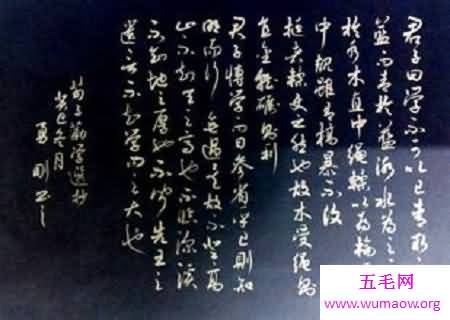 君子曰学不可以已青取
蓝而青於蓝冰水为之
於水木直中绳輮以为轮
中规虽有槁暴不复
挺者輮使之然也故木受绳则
直金就砺则利
君子博学而日参省乎己则知
明而行无过矣故不登高
山不知天之高也不临深溪
不知地之厚也不闻先王之
遗言不知学问之大也
荀子劝学选抄
癸巳冬月
五毛网
www.wumaow.org